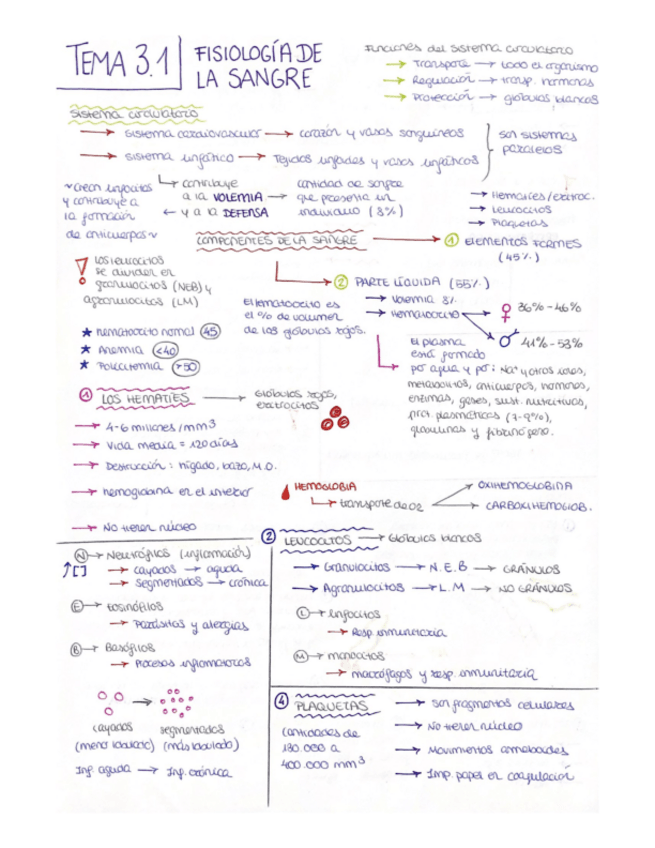 TEMA 3.1
FISIOLOGÍA DE
LA SANGRE
Funciones del sistema circulatorio
→ Transporte → todo el organismo
→ Regulación → transp. hormonas
→ Protección → glóbulos blancos
Sistema circulatorio
→ sistema cardiovascular → corazón y vasos sanguíneos
→ sistema linfático → Tejidos linfoides y vasos linfáticos
son sistemas
paralelos
~Crean linfocitos
y contribuye a
la formación
de anticuerpos~
contribuye
a la VOLEMIA →
← y a la DEFENSA
cantidad de sangre
que presenta un
individuo (8%)
→ Hematíes/eritroc.
→ Leucocitos
→ Plaquetas
COMPONENTES DE LA SANGRE → 1 ELEMENTOS FORMES
(45%)
los leucocitos
se dividen en
granulocitos (NEB) y
agranulocitos (LM)
→ 2 PARTE LÍQUIDA (55%)
El hematocito es
el % de volumen
de los glóbulos rojos.
→ Volemia 8%
→ Hematocrito
♀ 36% - 46%
♂ 41% - 53%
★ hematocito normal 45
★ Anemia <40
★ Policitemia >50
El plasma
está formado
por agua y por: Na+ y otros iones,
metabolitos, anticuerpos, hormonas,
enzimas, gases, sust. nutritivas,
prot. plasmáticas (7-8%),
globulinas y fibrinógeno.
1 LOS HEMATÍES → Glóbulos rojos,
eritrocitos
→ 4-6 millones/mm3
→ Vida media = 120 días
→ Destrucción: hígado, bazo, M.O.
→ hemoglobina en el interior
→ No tienen núcleo
HEMOGLOBIA
→ transporte de O2
OXIHEMOGLOBINA
CARBOXIHEMOGLOB.
2 LEUCOCITOS → Glóbulos blancos
→ Granulocitos → N.E.B → GRÁNULOS
→ Agranulocitos → L.M → NO GRÁNULOS
L → linfocitos
→ Resp. inmunitaria
M → monocitos
→ macrófagos y resp. inmunitaria
N → Neutrófilos (inflamación)
↑[ ]
→ cayados → aguda
→ segmentados → crónica
E → Eosinófilos
→ Parásitos y alergias
B → Basófilos
→ Procesos inflamatorios
cayados segmentados
(menos lobulado) (más lobulado)
Inf. aguda → Inf. crónica
4 PLAQUETAS
cantidades de
130.000 a
400.000 mm3
→ son fragmentos celulares
→ No tienen núcleo
→ Movimientos ameboides
→ Imp. papel en coagulación